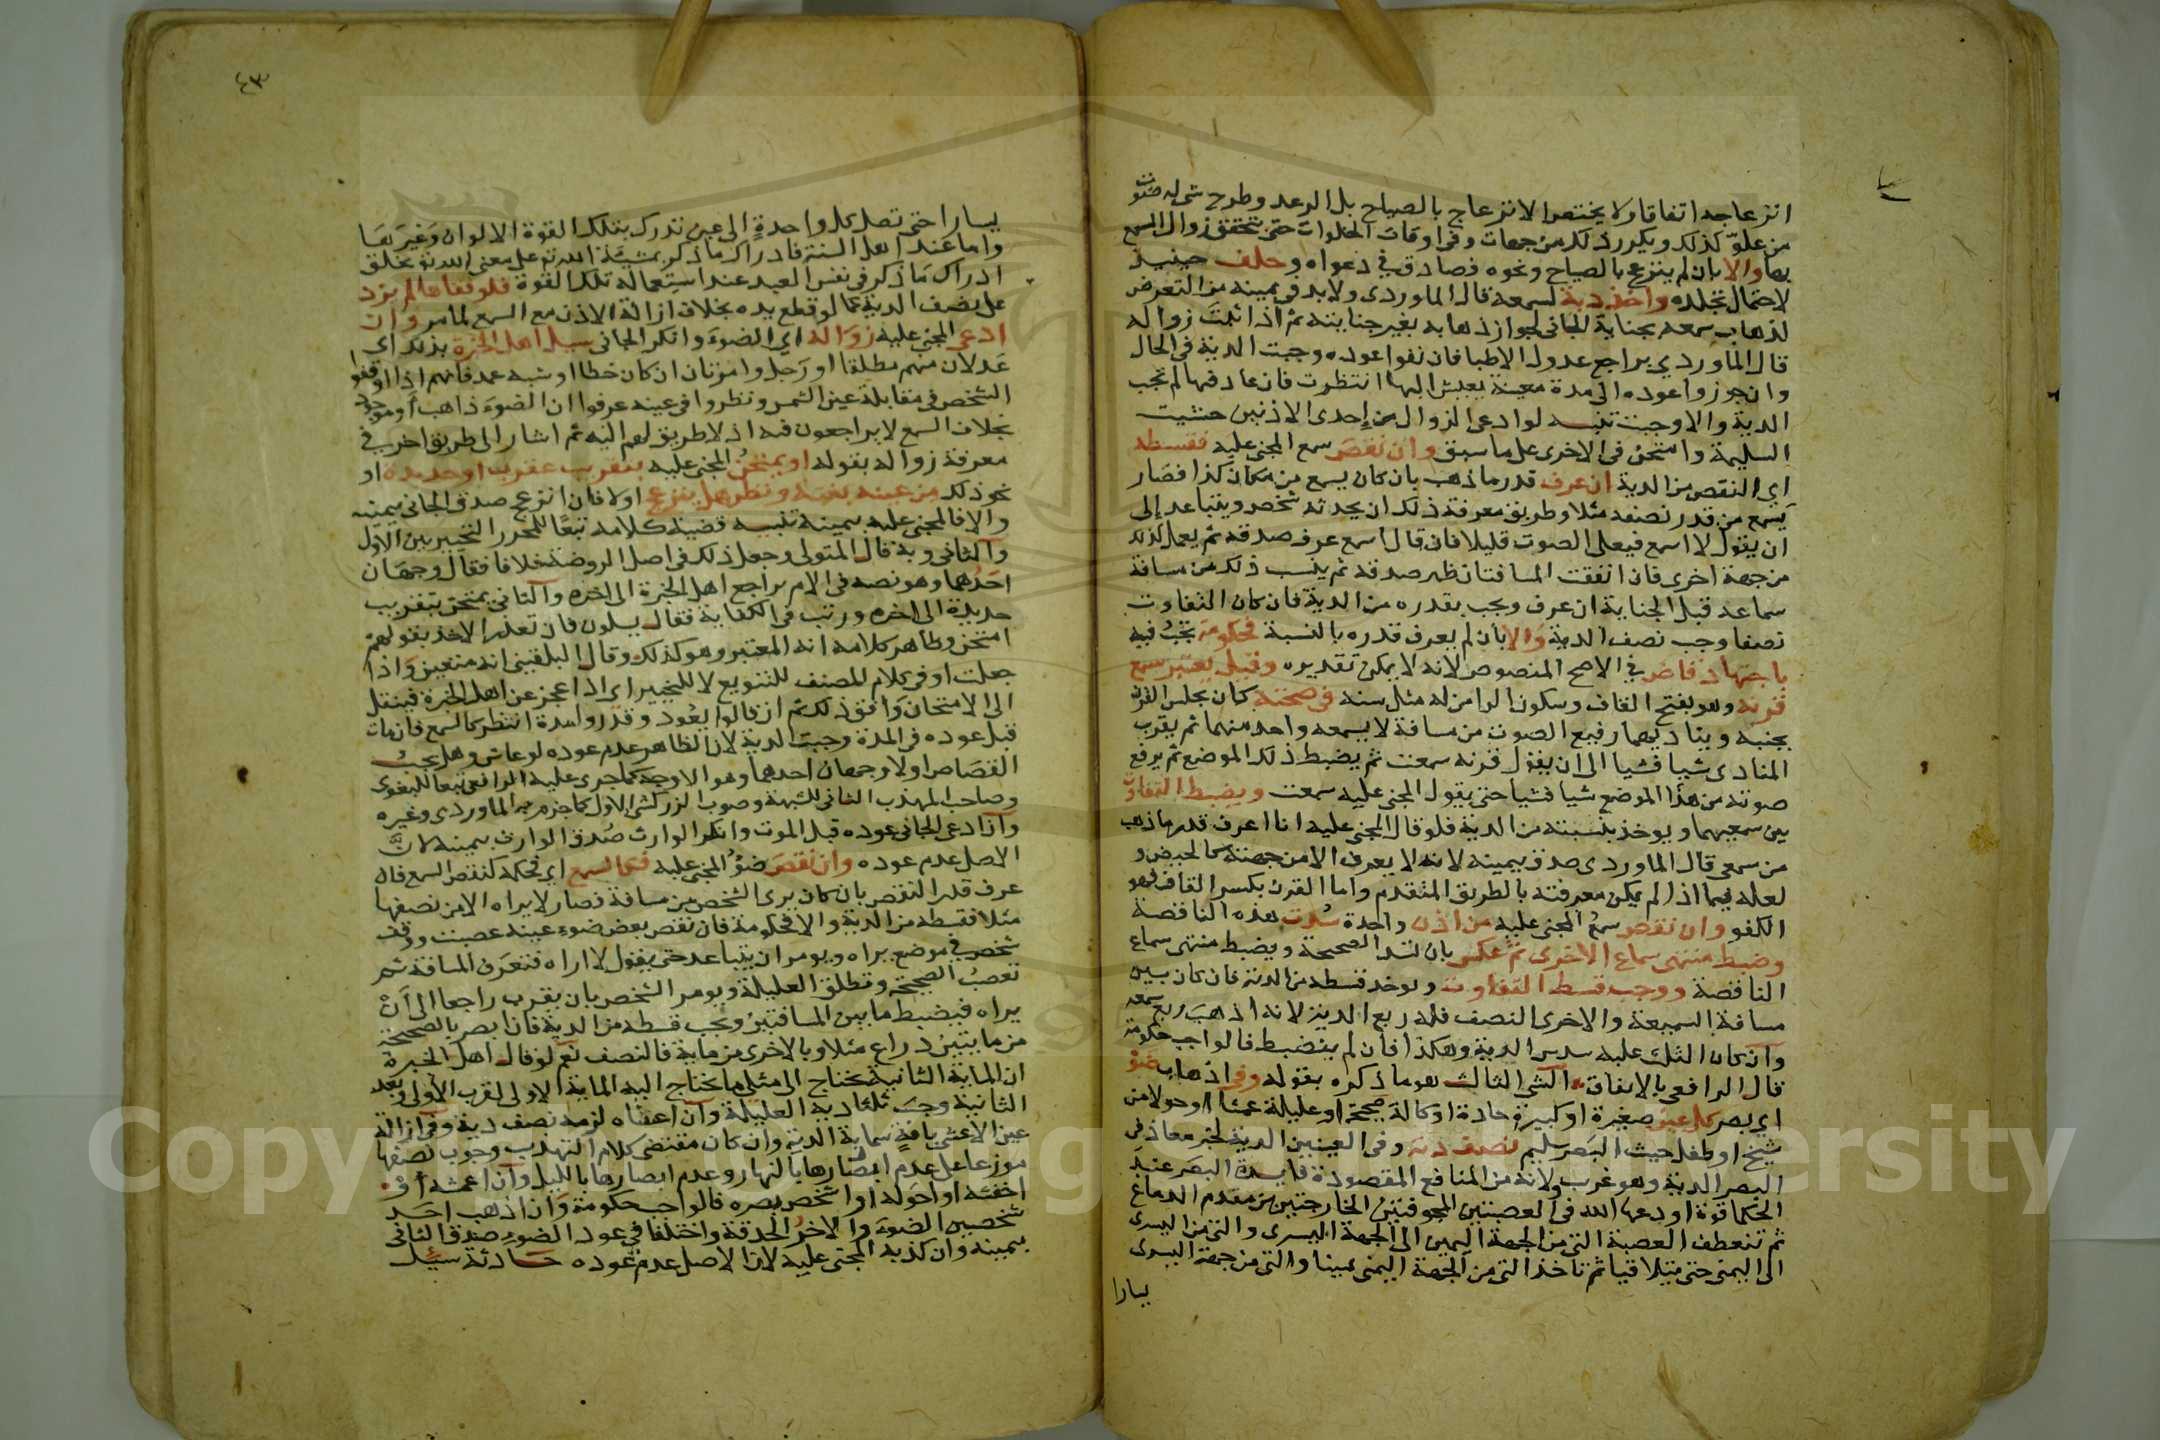 انزعاجه اتفاقا ولا يختص الانزعاج بالصياح بل الرعد وطرح شي له صوت
من علو كذلك ويكرر ذلك من جهات وفي اوقات الخلوات حتى يتحقق زوال السمع
بها والا بان لم ينزعج بالصياح ونحوه فصادق في دعواه وحلف حينيذ
لاحتمال تجلده واخذ دية لسمعه قال الماوردي ولا بد في يمينه من التعرض
لذهاب سمعه بجناية الجاني لجواز ذهابه بغير جنايته ثم اذا ثبت زواله
قال الماوردي يراجع عدول الاطبا فان نفوا عوده وجبت الدية في الحال
وان جوزوا عوده الى مدة معينة يعيش اليها انتظرت فان عاد فيها لم تجب
الدية والا وجبت تنبيه لو ادعى الزوال من إحدى الاذنين حشيت
السليمة وامتحن في الاخرى على ما سبق وان نقص سمع المجني عليه فقسطه
اي النقص من الدية ان عرف قدر ما ذهب بان كان يسمع من مكان كذا فصار
يسمع من قدر نصفه مثلا وطريق معرفة ذلك ان يحدثه شخص ويتباعد إلى
ان يقول لا اسمع فيعلى الصوت قليلا فان قال اسمع عرف صدقه ثم يعمل كذلك
من جهة اخرى فان اتفقت المسافتان ظهر صدقه ثم ينسب ذلك من مسافة
سماعه قبل الجناية ان عرف ويجب بقدره من الدية فان كان التفاوت
نصفا وجب نصف الدية والا بان لم يعرف قدره بالنسبة فحكومة تجب فيه
باجتهاد قاض في الاصح المنصوص لانه لا يمكن تقديره وقيل يعتبر سمع
قرنه وهو بفتح القاف وسكون الرا من له مثل سنه في صحته كان يجلس القرن
بجنبه ويناديهما رفيع الصوت من مسافة لا يسمعه واحد منهما ثم يقرب
المنادى شيا فشيا الى ان يقول قرنه سمعت ثم يضبط ذلك الموضع ثم يرفع
صوته من هذا الموضع شيا فشيا حتى يقول المجني عليه سمعت ويضبط التفاوت
بين سمعيهما ويوخذ بنسبته من الدية فلو قال المجني عليه انا اعرف قدر ما ذهب
من سمعي قال الماوردي صدق بيمينه لانه لا يعرف الا من جهته كالحيض و
لعله فيما اذا لم يمكن معرفته بالطريق المتقدم واما القرن بكسر القاف فهو
الكفو وان نقص سمع المجني عليه من اذن واحدة سدت هذه الناقصة
وضبط منتهى سماع الاخرى ثم عكس بان تسد الصحيحة ويضبط منتهى سماع
الناقصة ووجب قسط التفاوت ويوخذ قسطه من الدية فان كان بين
مسافة السميعة والاخرى النصف فله ربع الدية لانه اذهب ربع سمعه
وان كان الثلث عليه سدس الدية وهكذا فان لم ينضبط فالواجب حكومة
قال الرافعي بالاتفاق الشي الثالث هو ما ذكره بقوله وفي اذهاب ضو
اي بصر كل عين صغيرة او كبيرة حادة او كالة صحيحة او عليلة عمشا او حولا من
شيخ او طفل حيث البصر سليم نصف دية وفي العينين الدية لخبر معاذ في
البصر الدية وهو غريب ولانه من المنافع المقصودة فايدة البصر عند
الحكما قوة اودعها الله في العصبتين المجوفتين الخارجتين من مقدم الدماغ
ثم تنعطف العصبة التي من الجهة اليمين الى الجهة اليسرى والتي من اليسرى
الى اليمنى حتى يتلاقيا ثم تاخذ التي من الجهة اليمنى يمينا والتي من جهة اليسرى
يسارا
٤٣
يسارا حتى تصل كل واحدةٍ الى عين تدرك بتلك القوة الالوان وغيرها
واما عند اهل السنة فادراك ما ذكر بمشيئة الله تع على معنى الله تع يخلق
ادراك ما ذكر في نفس العبد عند استعماله تلك القوة فلو فقاها لم يزد
على نصف الدية كما لو قطع يده بخلاف ازالة الاذن مع السمع لما مر وان
ادعى المجني عليه زواله اي الضوء وانكر الجاني سيل اهل الخبرة بذلك اي
عدلان منهم مطلقا او رجل وامرتان ان كان خطا او شبه عمد فانهم اذا اوقفوا
الشخص في مقابلة عين الشمس ونظروا في عينه عرفوا ان الضوء ذاهب او موجود
بخلاف السمع لا يراجعون فيه اذ لا طريق لهم اليه ثم اشار الى طريق اخر في
معرفة زواله بقوله او يمتحن المجني عليه بتقريب عقرب او حديدة او
نحو ذلك من عينه بغتة ونظر هل ينزعج اولا فان انزعج صدق الجاني بيمينه
والا فالمجني عليه بيمينه تنبيه قضية كلامه تبعًا للمحرر التخيير بين الاول
والثاني وبه قال المتولي وجعل ذلك في اصل الروضة خلافا فقال وجهان
احدهما وهو نصه في الام يراجع اهل الخبرة الى اخره والثاني يمتحن بتقريب
حديدة الى اخره ورتب في الكفاية فقال يسلون فان تعذر الاخذ بقولهم
امتحن وظاهر كلامه انه المعتبر وهو كذلك وقال البلقيني انه متعين واذا
جعلت او في كلام المصنف للتنويع لا للتخيير اي اذا عجز عن اهل الخبرة فينتقل
الى الامتحان وافق ذلك ثم ان قالوا يعود وقدروا مدة انتظر كالسمع فان مات
قبل عوده في المدة وجبت الدية لان الظاهر عدم عوده لو عاش وهل يجب
القصاص اولا وجهان احدهما وهو الاوجه كما جرى عليه الرافعي تبعا للبغوي
وصاحب المهذب الثاني للشبهة وصوب الزركشي الاول كما جزم به الماوردي وغيره
واذا ادعى الجاني عوده قبل الموت وانكر الوارث صدق الوارث بيمينه لان
الاصل عدم عوده وان نقص ضوء المجني عليه فكالسمع اي فحكمه كنقص السمع فان
عرف قدر النقص بان كان يرى الشخص من مسافة فصار لا يراه الا من نصفها
مثلا فقسطه من الدية والا فحكومة فان نقص بعض ضوء عينه عصبت ووقف
شخص في موضع يراه ويومر ان يتباعد حتى يقول لا اراه فتعرف المسافة ثم
تعصب الصحيحة وتطلق العليلة ويومر الشخص بان يقرب راجعا الى ان
يراه فيضبط ما بين المسافتين ويجب قسطه من الدية فاذا بصر بالصحيحة
من مايتين ذراع مثلا وبالاخرى من ماية فالنصف نعم لو قال اهل الخبرة
ان الماية الثانية تحتاج الى مثلي ما تحتاج اليه الماية الاولى لقرب الاولى وبعد
الثانية وجب ثلثا دية العليلة وان اعشاه لزمه نصف دية وفي ازالة
عين الاعشى بافة سماية الدية وان كان مقتضى كلام التهذيب وجوب نصفها
موزعا على عدم ابصارها بالنهار وعدم ابصارها بالليل وان اعمشه او
اخفشه او احوله او اشخص بصره فالواجب حكومة وان اذهب احد
شخصين الضوء والاخر الحدقة واختلفا في عود الضوء صدق الثاني
بيمينه وان كذبه المجني عليه لان الاصل عدم عوده حادثة سيل